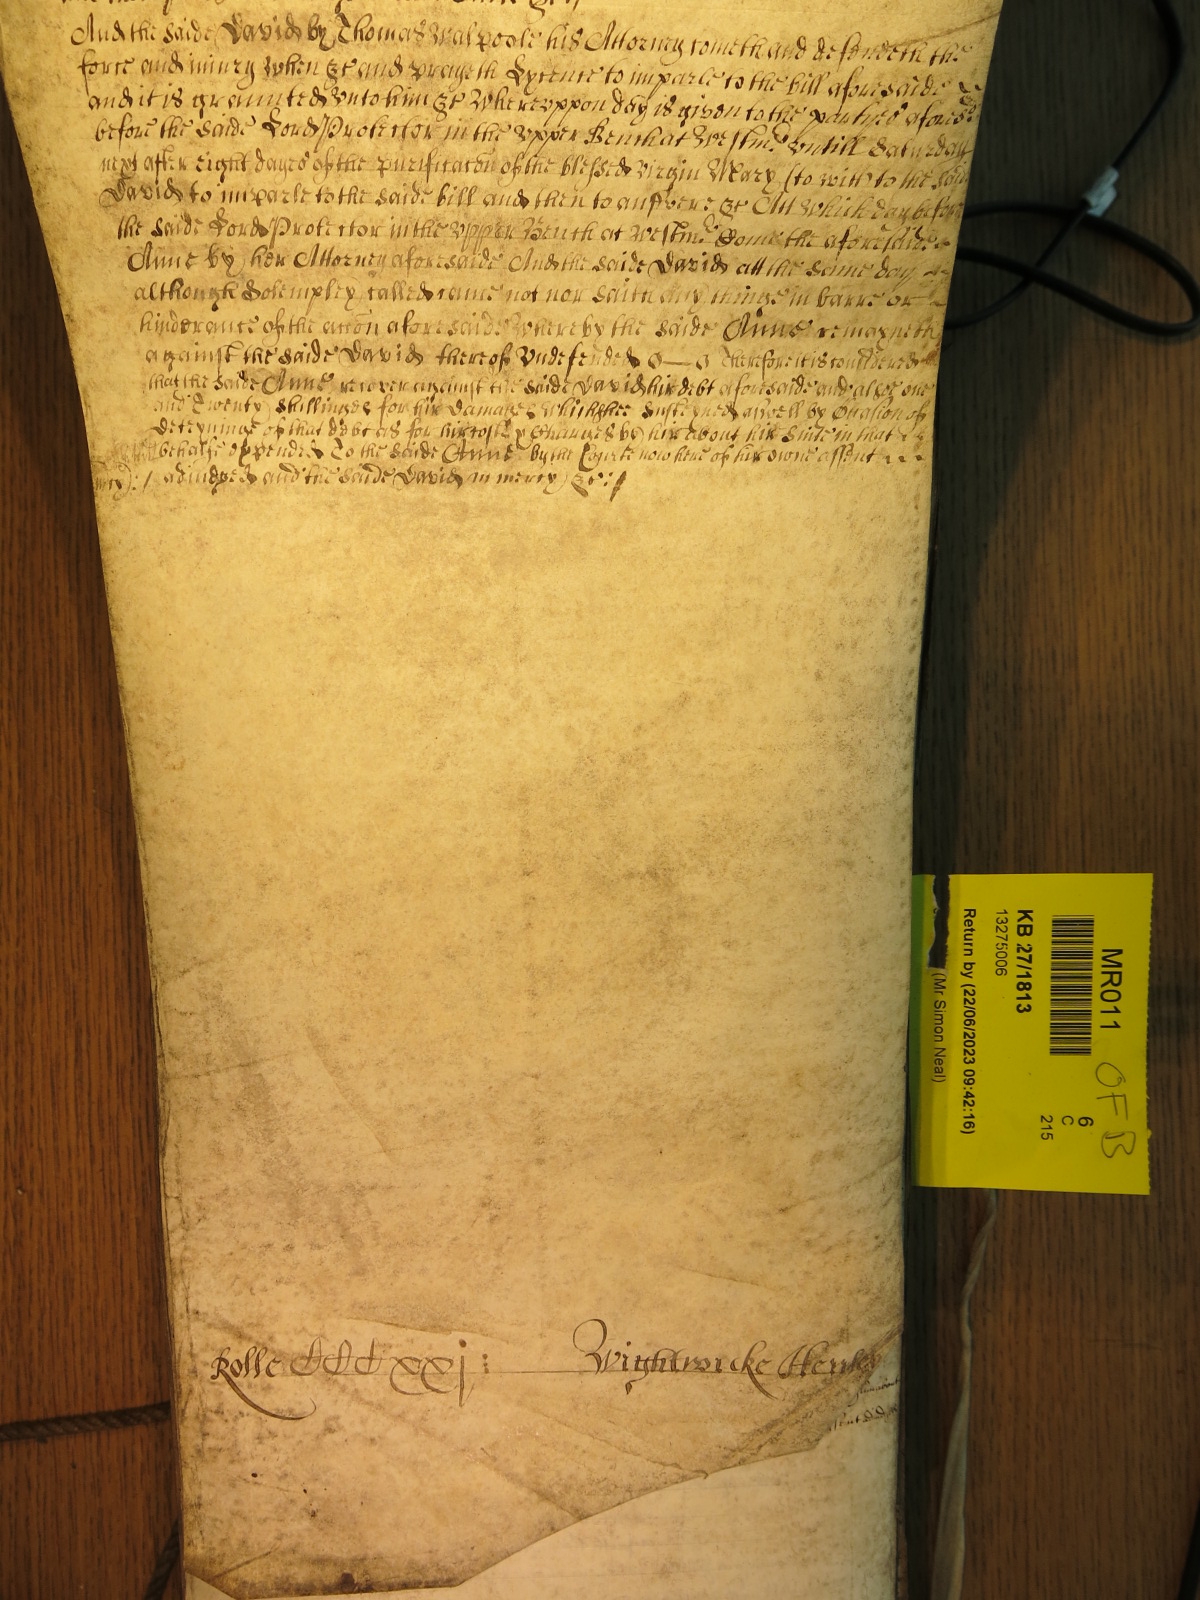 And the saide David by Thomas Walpoole his Attorney cometh and defendeth the
force and iniury when &c and prayeth Lycence to imparle to the bill aforesaide
and it is graunted vnto him &c Wherevppon day is given to the partyes aforesd
before the saide Lord Protector in the vpper Bench at Westmr vntill Saturday
next after eight dayes of the purificac̃on of the blessed virgin Mary (to witt) to the said
David to imparle to the saide bill and then to answere &c Att which day before
the saide Lord Protector in the vpper Bench at Westmr Come the aforesaide
Anne by her Attorney aforesaide And the saide David att the same day
although Solempley called came not nor saith any thinge in barre or
hinderance of the acc̃on aforesaide Whereby the saide Anne remayneth
against the saide David thereof vndefended Therefore it is considered
that the saide Anne recover against the saide David hir debt aforesaide and alsoe one
and Twenty shillinges for hir damages which shee susteyned aswell by Occasion of
deteyninge of that debt as for hir costs & Charges by hir about hir Suite in that
behalfe expended To the saide Anne by the Courte now here of hir owne assent
adiudged and the saide David in mercy &c:
Rolle CCCxxj: Wightwicke
MR011
OFB
6
C
215
KB 27/1813
13275006
Return by (22/06/2023 09:42:16)
(Mr Simon Neal)